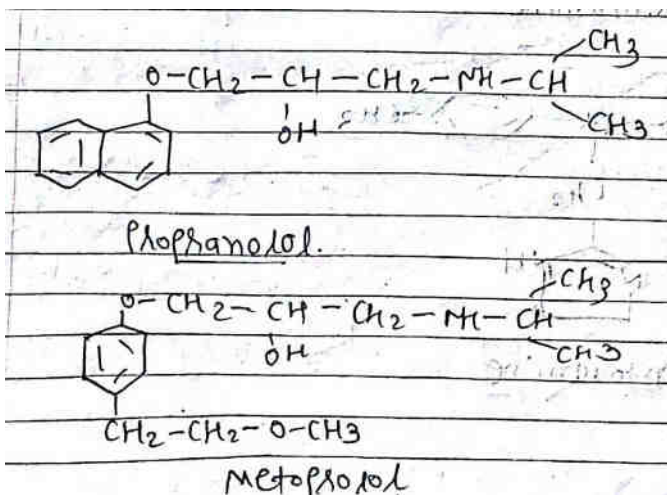 CH3
O-CH2-CH-CH2-NH-CH
OH
CH3
Propranolol.
CH3
O-CH2-CH-CH2-NH-CH
OH
CH3
CH2-CH2-O-CH3
Metoprolol